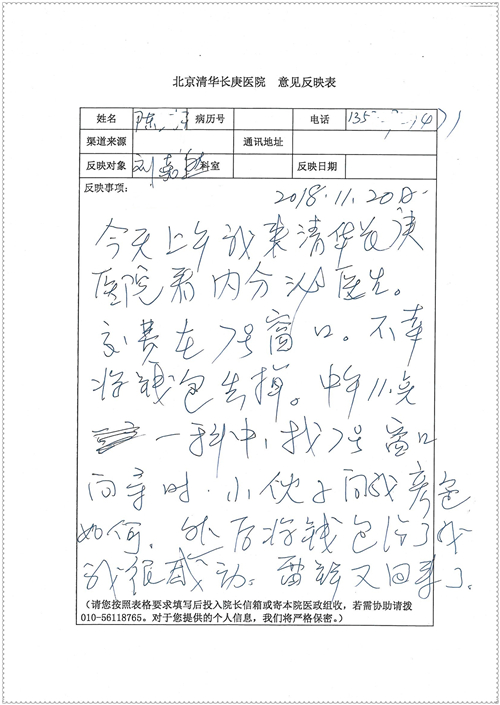 北京清华长庚医院 意见反映表
姓名 陈 病历号 电话 135
渠道来源 通讯地址
反映对象 刘嘉 科室 反映日期
反映事项:
2018.11.20日
今天上午我来清华长庚
医院看内分泌医生。
交费在7号窗口。不幸
将钱包丢掉。中午11点
一刻中,找7号窗口
问寻时.小伙子问我旁包
如何.然后将钱包给了我
我很感动。雷锋又回来了。
(请您按照表格要求填写后投入院长信箱或寄本院医政组收,若需协助请拨
010-56118765。对于您提供的个人信息,我们将严格保密。)